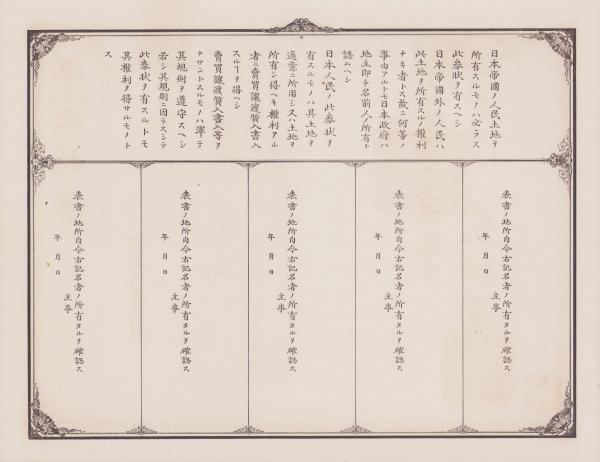 日本帝國ノ人民土地ヲ
所有スルモノハ必ラス
此券狀ヲ有スヘシ
日本帝國外ノ人民ハ
此土地ヲ所有スルノ權利
ナキ者トス故ニ何等ノ
事由アルトモ日本政府ハ
地主即チ名前人ノ所有ト
認ムヘシ
日本人民ノ此券狀ヲ
有スルモノハ其土地ヲ
適意ニ所用シ又ハ土地ヲ
所有シ得ヘキ權利アル
者ニ賣買讓渡質入書入
スルヿヲ得ヘシ
賣買讓渡質入書入等ヲ
ナサントスルモノハ渾テ
其規則ヲ遵守スヘシ
若シ其規則ニ因ラスシテ
此券狀ヲ有スルトモ
其權利ヲ得サルモノト
ス
表書ノ地所自今右記名者ノ所有タルヲ確認ス
主事
年 月 日
表書ノ地所自今右記名者ノ所有タルヲ確認ス
主事
年 月 日
表書ノ地所自今右記名者ノ所有タルヲ確認ス
主事
年 月 日
表書ノ地所自今右記名者ノ所有タルヲ確認ス
主事
年 月 日
表書ノ地所自今右記名者ノ所有タルヲ確認ス
主事
年 月 日